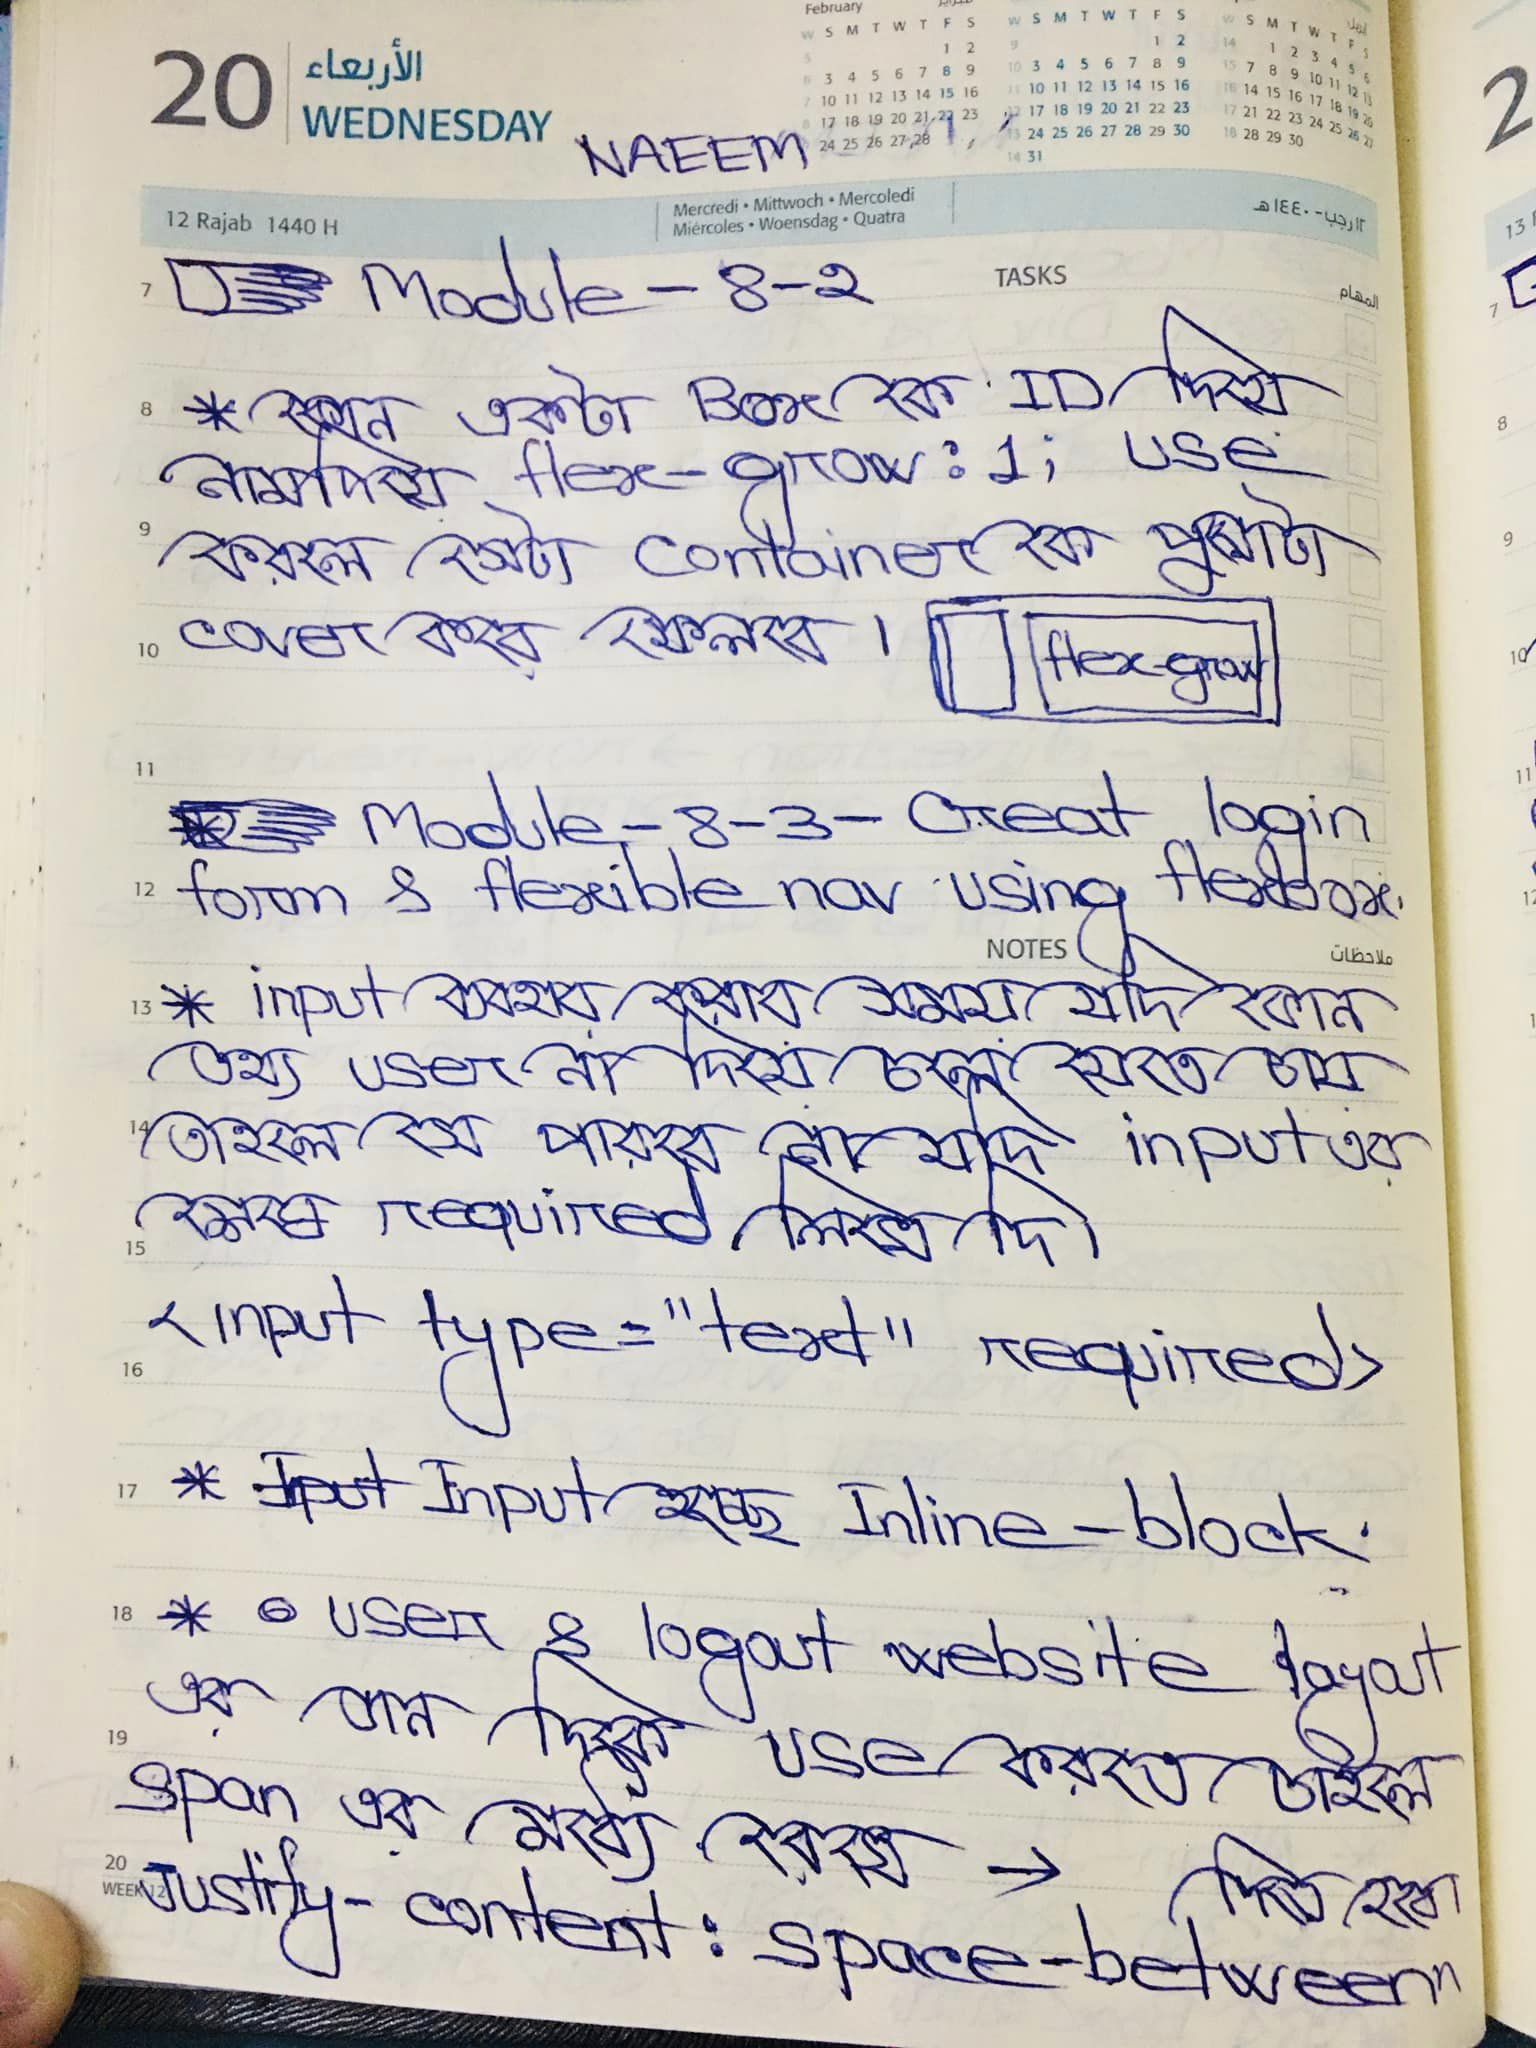 February
W S M T W T F S
5 1 2
6 3 4 5 6 7 8 9
7 10 11 12 13 14 15 16
8 17 18 19 20 21 22 23
24 25 26 27 28
W S M T W T F S
9 1 2
10 3 4 5 6 7 8 9
11 10 11 12 13 14 15 16
12 17 18 19 20 21 22 23
13 24 25 26 27 28 29 30
14 31
W S M T W T F S
14 1 2 3 4 5 6
15 7 8 9 10 11 12 13
16 14 15 16 17 18 19 20
17 21 22 23 24 25 26 27
18 28 29 30
20
الأربعاء
WEDNESDAY
NAEEM
12 Rajab 1440 H
Mercredi • Mittwoch • Mercoledi
Miércoles • Woensdag • Quatra
١٢ رجب - ١٤٤٠هـ
7 Module - 8-2
TASKS
المهام
8 * কোন একটা Box কে ID দিয়ে
নাম দিয়ে flex-grow: 1; use
9 করলে সেটা container কে পুরোটা
10 cover করে ফেলবে ।
flex-grow
11
Module - 8-3 - Creat login
12 form & flexible nav using flexbox.
NOTES
ملاحظات
13 * input ব্যবহার করার সময় যদি কোন
তথ্য user না দিয়ে চলে যেতে চায়
14 তাহলে সে পারবে না যদি input এর
মধ্যে required লিখে দি।
15
<input type="text" required>
16
17 * Input Input হচ্ছে Inline-block.
18 * user & logout website layout
এর ডান দিকে use করতে চাইলে
19 span এর মধ্যে রেখে → দিতে হবে।
20 Justify-content: space-between"
WEEK 12